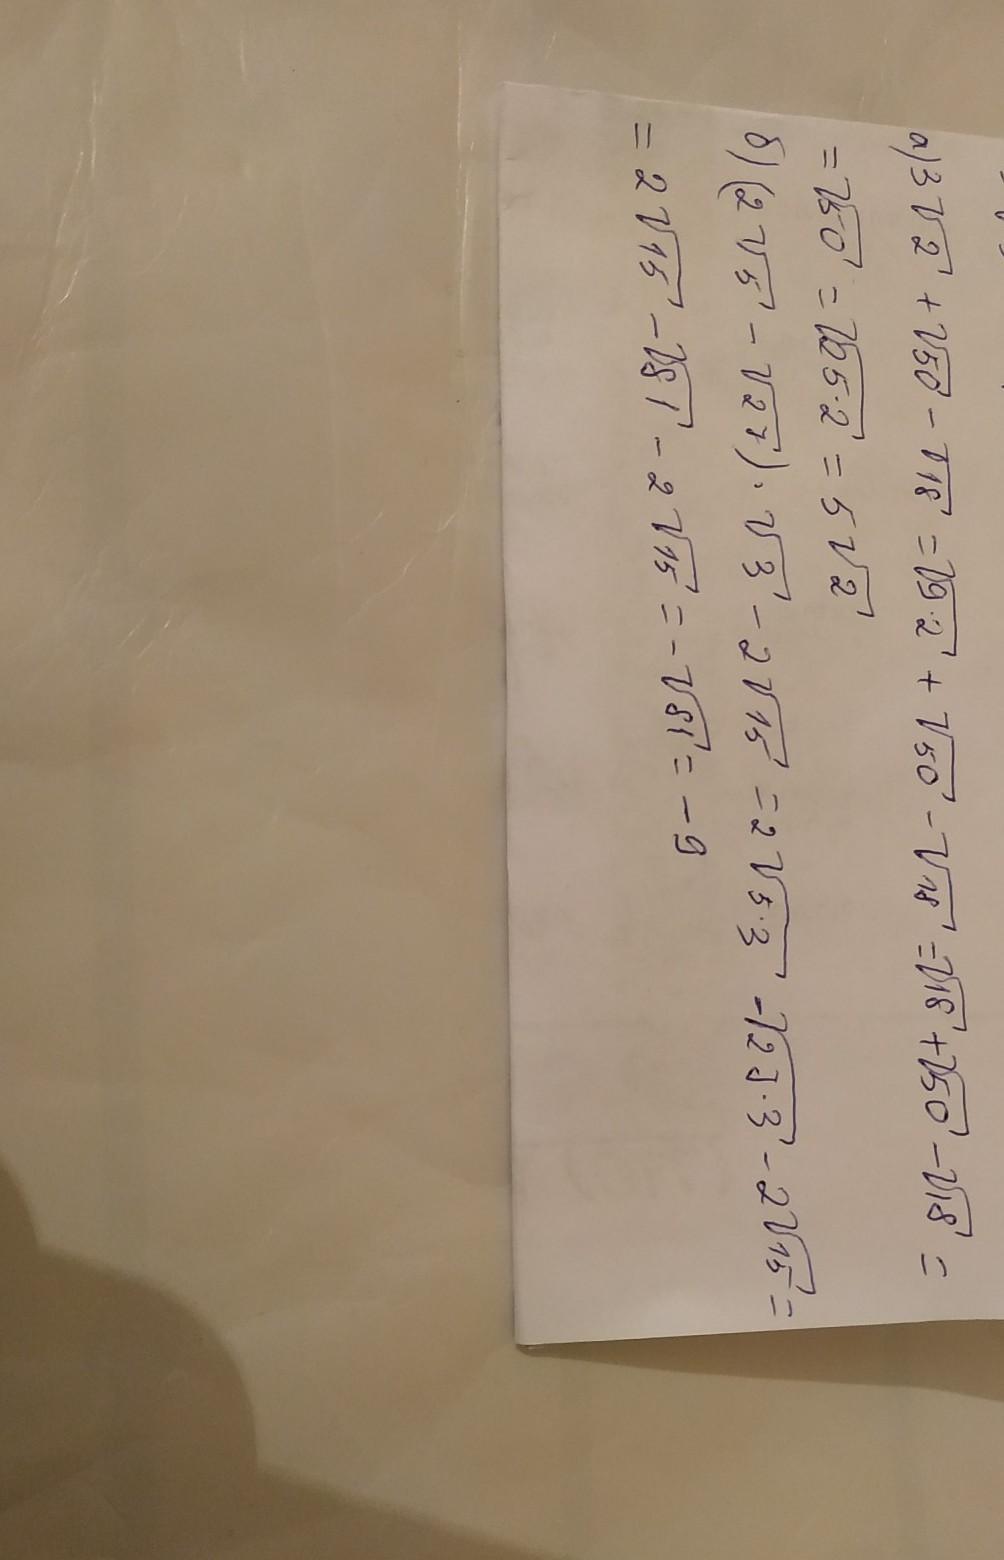 а) 3√2 + √50 - √18 = √9·2 + √50 - √18 = √18 + √50 - √18 =
= √50 = √25·2 = 5√2
б) (2√5 - √27) · √3 - 2√15 = 2√5·3 - √27·3 - 2√15 =
= 2√15 - √81 - 2√15 = -√81 = -9